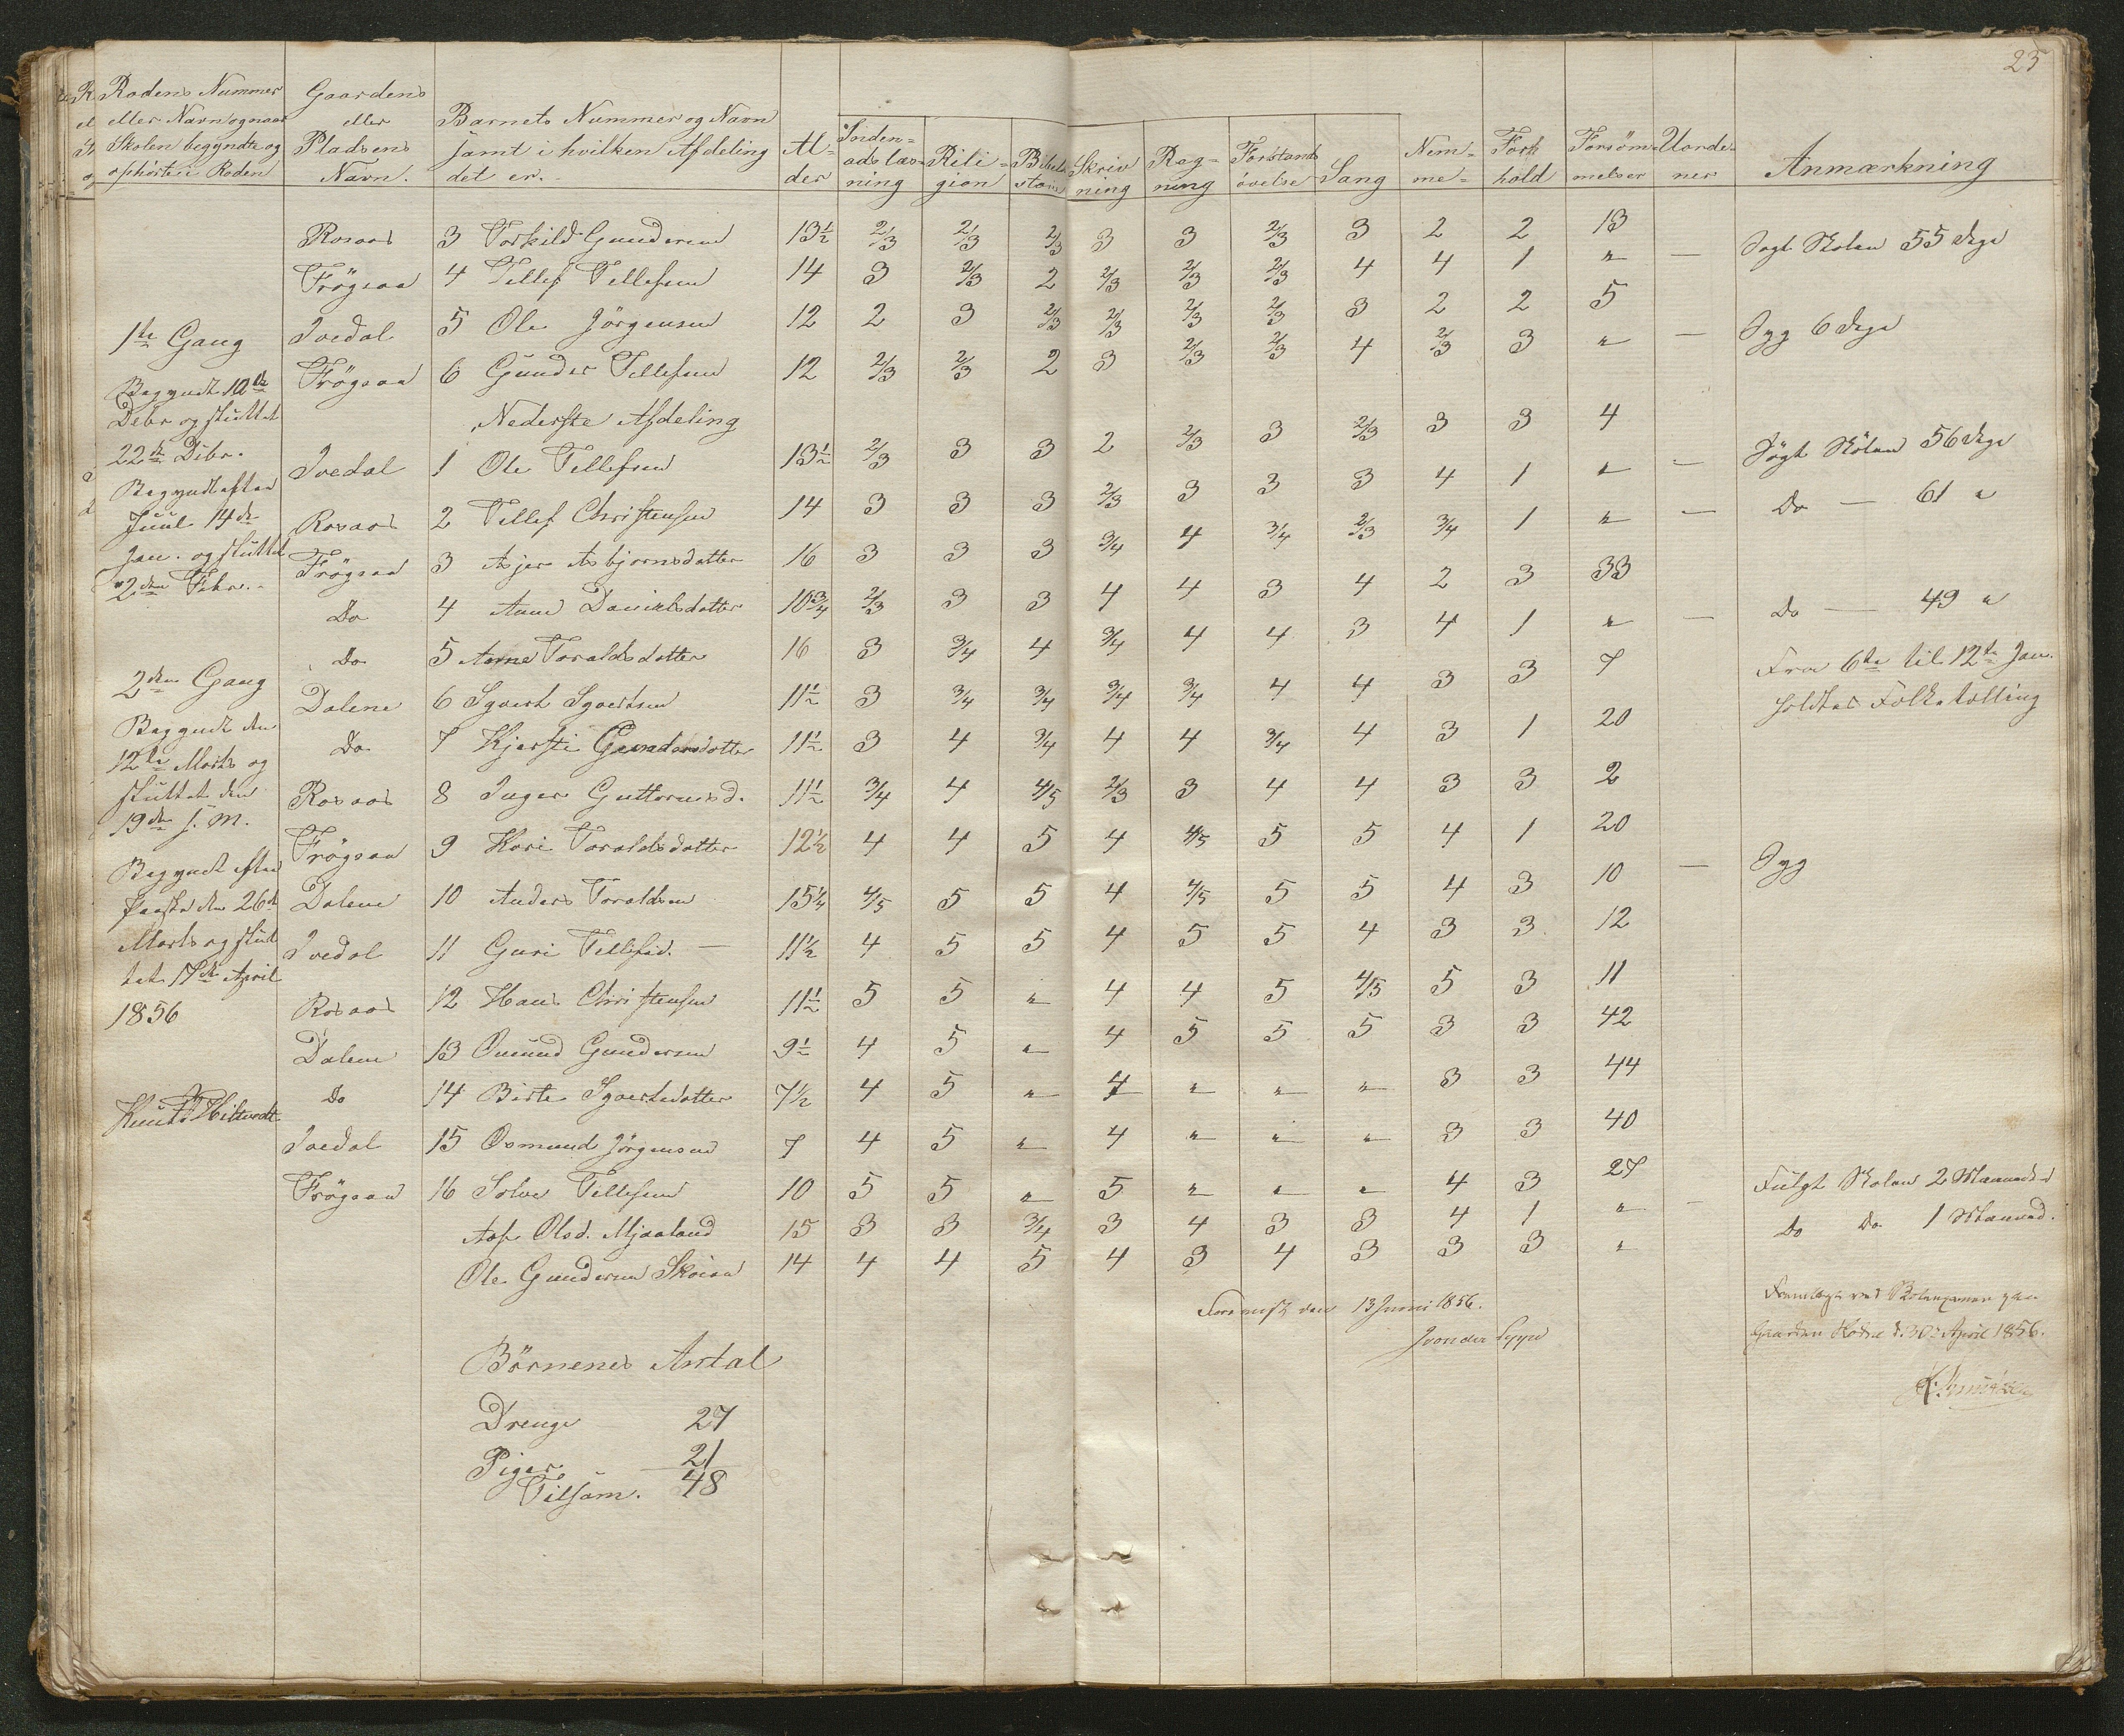 25
Rodens Nummer eller Navn og naar Skolen begyndte og ophørte i Roden
Gaardens eller Pladsens Navn.
Barnets Nummer og Navn samt i hvilken Afdeling det er.
Alder
Indenadslæsning
Religion
Skrivning
Regning
Forstandsøvelse
Sang
Nemme
Forhold
Forsømmelser
Uordener
Anmærkning
Rosaas 3 Torkild Gundersen 13½ 2/3 2/3 2/3 3 3 2/3 3 2 2 13 Søgt Skolen 55 Dage
Frögsaa 4 Tellef Tellefsen 14 3 2/3 2 2/3 2/3 2/3 4 4 1 " —
1ste Gang
Ivedal 5 Ole Jörgensen 12 2 3 2/3 2/3 2/3 2/3 3 2 2 5 Syg 6 Dage
Frögsaa 6 Gunder Tellefsen 12 2/3 2/3 2 3 2/3 2/3 4 2/3 3 " —
Begyndt 10de
Debr og sluttet
22de Dibr.
Nederste Afdeling
Ivedal 1 Ole Tellefsen 13½ 2/3 3 3 2 2/3 3 2/3 3 3 4 Søgt Skolen 56 Dage
Begyndt efter
Juul 14de
Jan. og sluttet
2den Febr.
Rosaas 2 Tellef Christensen 14 3 3 3 2/3 3 3 3 4 1 " — Do — 61 "
Frögsaa 3 Asjer Asbjornsdatter 16 3 3 3 3/4 4 3/4 2/3 3/4 1 " —
Do 4 Anne Danielsdatter 10¾ 2/3 3 3 4 4 3 4 2 3 33 Do — 49 "
Do 5 Anne Toraldsdatter 16 3 3/4 4 3/4 4 4 3 4 1 " —
2den Gang
Dalene 6 Sgvert Sgvertsen 11½ 3 3/4 3/4 3/4 3/4 4 4 3 3 7 Fra 6te til 12te Jan.
holdtes Folketælling
Begyndt den
12te Marts og
sluttet den
19de s. M.
Do 7 Kjersti Gundersdatter 11½ 3 4 3/4 4 4 3/4 4 3 1 20
Rosaas 8 Inger Guttormsd. 11½ 3/4 4 4/5 2/3 3 4 4 3 3 2
Frögsaa 9 Kari Toraldsdatter 12½ 4 4 5 4 4/5 5 5 4 1 20
Begyndt efter
Paaske den 26de
Marts og slut
tet 17de April
1856
Dalene 10 Anders Toraldsen 15¼ 4/5 5 5 4 4/5 5 5 4 3 10 — Syg
Ivedal 11 Guri Tellefsd. — 11½ 4 5 5 4 5 5 4 3 3 12
Rosaas 12 Hans Christensen 11½ 5 5 " 4 4 5 4/5 5 3 11
Dalene 13 Omund Gundersen 9½ 4 5 " 4 5 5 5 3 3 42
Do 14 Birte Sgvertsdatter 7½ 4 5 " 4 " " " 3 3 44
Ivedal 15 Osmund Jörgensen 7 4 5 " 4 " " " 3 3 40
Frögsaa 16 Solve Tellefsen 10 5 5 " 5 " " " 4 3 27 Fulgt Skolen 2 Maaneder
Aase Olsd. Mjaaland 15 3 3 3/4 3 4 3 3 4 1 " — Do Do 1 Maaned.
Ole Gundersen 14 4 4 5 4 3 4 3 3 3 "
13 Juni 1856.
Gaarden d. 30te April 1856.
Börnenes Antal
Drenge 27
Piger 21
Tilsam. 48